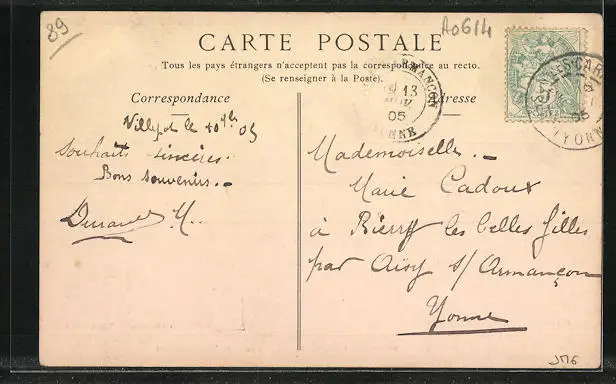 89
A0614
CARTE POSTALE
Tous les pays étrangers n'acceptent pas la correspondance au recto.
(Se renseigner à la Poste).
Correspondance
Adresse
ARMANÇON
13
05
YONNE
05
YONNE
POSTES
le 10 9bre 05
Souhaits sincères.
Bons souvenirs.-
Durand M..
Mademoiselle.-
Marie Cadoux
à Bierry les belles filles
par Aisy s/ Armançon
Yonne
JM6